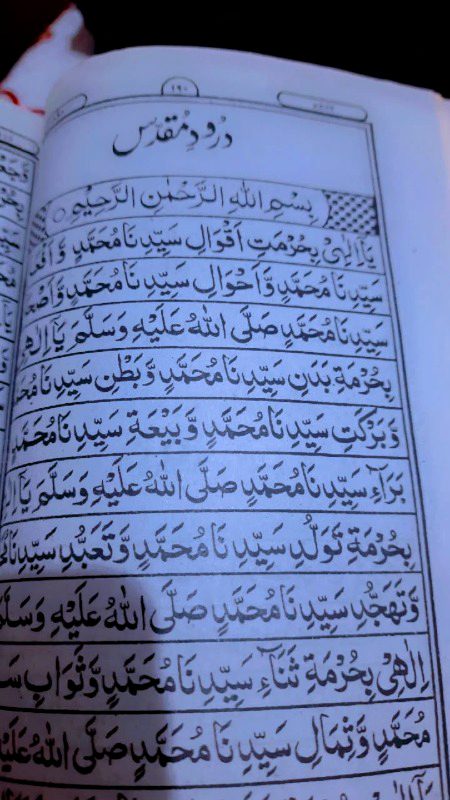 ۱۹۰
درودِ مُقدّس
بِسْمِ اللهِ الرَّحْمٰنِ الرَّحِيْمِ ○
يَآ اِلٰهِيْ بِحُرْمَتِ اَقْوَالِ سَيِّدِنَا مُحَمَّدٍ
سَيِّدِنَا مُحَمَّدٍ وَّاَحْوَالِ سَيِّدِنَا مُحَمَّدٍ
سَيِّدِنَا مُحَمَّدٍ صَلَّى اللهُ عَلَيْهِ وَسَلَّمَ
بِحُرْمَةِ بَدَنِ سَيِّدِنَا مُحَمَّدٍ وَّبَطْنِ سَيِّدِنَا
وَّبَرْكَتِ سَيِّدِنَا مُحَمَّدٍ وَّبَيْعَةِ سَيِّدِنَا
بَرَآءِ سَيِّدِنَا مُحَمَّدٍ صَلَّى اللهُ عَلَيْهِ وَسَلَّمَ
بِحُرْمَةِ تَوَلُّدِ سَيِّدِنَا مُحَمَّدٍ وَّتَعَبُّدِ
وَّتَهَجُّدِ سَيِّدِنَا مُحَمَّدٍ صَلَّى اللهُ عَلَيْهِ
اِلٰهِيْ بِحُرْمَةِ ثَنَآءِ سَيِّدِنَا مُحَمَّدٍ وَّثَوَابِ
مُحَمَّدٍ وَّثِمَالِ سَيِّدِنَا مُحَمَّدٍ صَلَّى اللهُ